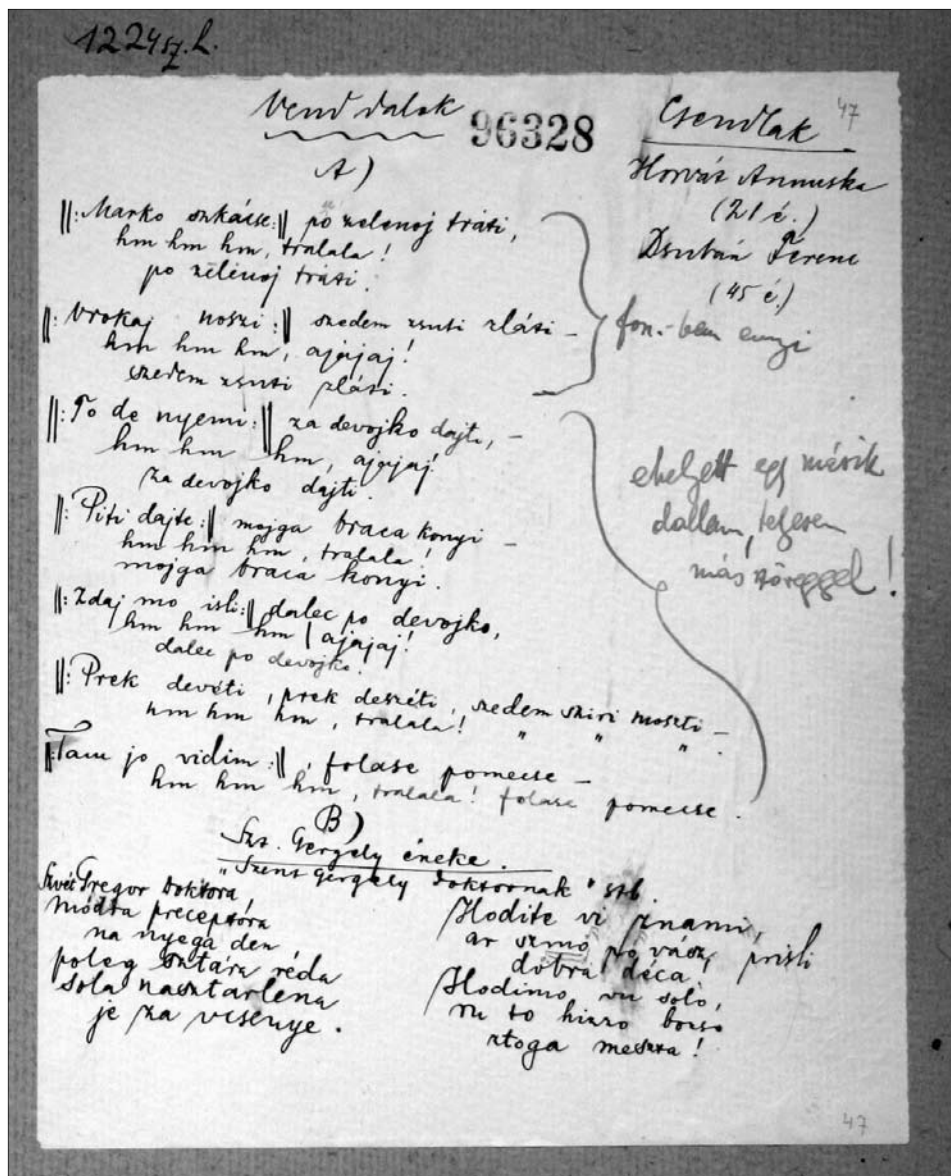 1224 sz. l.
Vend dalok
96328
Csendlak
47
A)
Horvát Annuska
(21 é.)
Ferenc
(45 é.)
||: Marko szkácse :|| po zelenoj tráti,
hm hm hm, tralala!
po zelénoj tráti.
||: Vrokaj noszi :|| szedem zsuti zláti –
hm hm hm, ajajaj!
szedem zsuti zláti.
fon.-ban ennyi
||: To de nyemi :|| za devojko dajti, –
hm hm hm, ajajaj!
za devojko dajti.
||: Piti dajte :|| mojga braca konyi –
hm hm hm, tralala!
mojga braca konyi.
ehelyett egy másik
dallam, teljesen
más szöveggel!
||: Zdaj mo isli :|| dalec po devojko,
hm hm hm, ajajaj!
dalec po devojko.
||: Prek devéti, prek deszéti, szedem skiri moszti –
hm hm hm, tralala! " " " .
||: Tam jo vidim :||, folase pomecse –
hm hm hm, tralala! folase pomecse.
B)
Szt. Gergely éneke.
"Szent Gergely doktornak" stb
Szvét Gregor doktora,
módra preceptora
na nyega den
poleg sztára réda
sola nasztarlena
je za vcsenye.
Hodite vi znami,
ar szmo po vász prisli
dobra déca,
Hodimo vu solo,
nu to hizzo bozso
ztoga meszta!
47